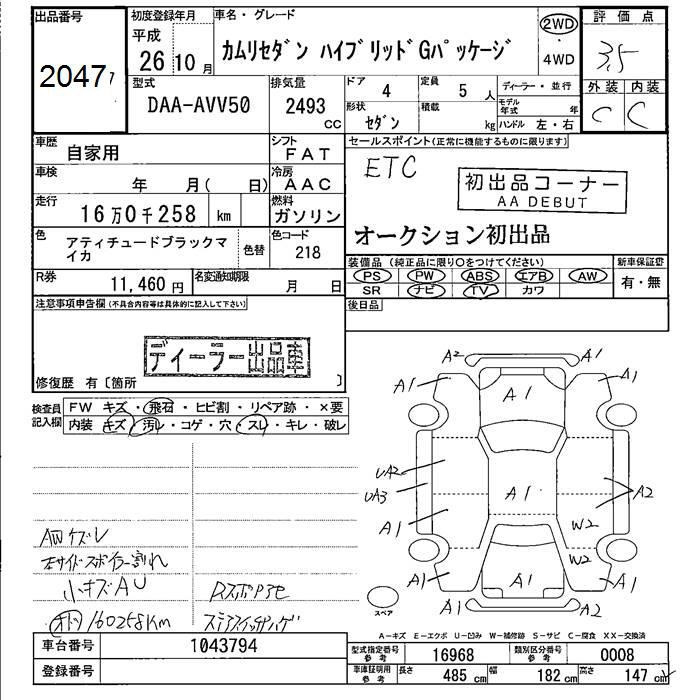 出品番号 初度登録年月 車名・グレード 2WD 評価点
20477 平成 26 10月 カムリセダン ハイブリッドGパッケージ ・4WD 3.5
型式 排気量 ドア 定員 ディーラー・並行 外装 内装
DAA-AVV50 2493 CC 4 5人 モデル年式 年 C C
形状 セダン 積載 kg ハンドル 左・右
車歴 自家用 シフト FAT セールスポイント(正常に機能するものに限ります)
車検 年 月( 日) 冷房 AAC ETC 初出品コーナー
AA DEBUT
走行 16万0千258 km 燃料 ガソリン
オークション初出品
色 アティチュードブラックマイカ 色替 色コード 218
装備品(純正品に限り○をつけてください) 新車保証書
R券 11,460円 名変通知期限 月 日 PS PW ABS エアB AW 有・無
SR ナビ TV カワ
注意事項申告欄(不具合内容等は具体的に記入して下さい) 後日品
ディーラー出品車
修復歴 有〔箇所 〕
検査員記入欄 FW キズ・飛石・ヒビ割・リペア跡・×要
内装 キズ・汚レ・コゲ・穴・スレ・キレ・破レ
A2 A1
A1 A1 A1
UA2
UA3 A1 A2
A1 W2
W2
A1 A1 A1
A1 A2
スペア
AWケズレ
左サイドスポイラー割れ
小キズAU
160258Km
A-キズ E-エクボ U-凹み W-補修跡 S-サビ C-腐食 XX-交換済
車台番号 1043794 型式指定番号 参考 16968 類別区分番号 参考 0008
登録番号 車庫証明用 参考 長さ 485 cm 幅 182 cm 高さ 147 cm